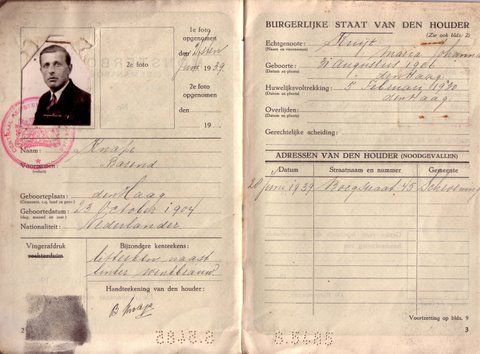 1e foto
opgenomen
den 2den
Juni 1939
2e foto
2e foto
opgenomen
den
19
Naam: Knaap
Voornamen: Barend
(voluit)
Geboorteplaats: den Haag
Geboortedatum: 23 October 1904
Nationaliteit: Nederlander
Vingerafdruk
rechterduim
Bijzondere kenteekens:
litteeken naast
linker wenkbrauw
Handteekening van den houder:
B Knaap
2
BURGERLIJKE STAAT VAN DEN HOUDER
(Zie ook bldz. 2)
Echtgenoote: Kuijt
Maria Johanna
(Naam en voornamen)
Geboorte: 31 Augustus 1906
(Datum en plaats)
den Haag
Huwelijksvoltrekking: 5 Februari 1930
(Datum en plaats)
den Haag
Overlijden:
(Datum en plaats)
Gerechtelijke scheiding:
ADRESSEN VAN DEN HOUDER (NOODGEVALLEN)
Datum Straatnaam en nummer Gemeente
20 Juni 1939 45
Voortzetting op bldz. 9
3